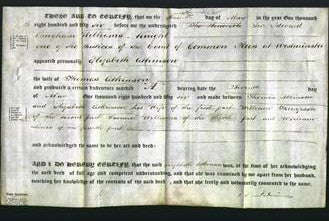 THESE ARE TO CERTIFY, that on the day of May in the year One thousand
eight hundred and fifty six before me the undersigned Sir Edward
Vaughan Williams Knight
one of the Justices of the Court of Common Pleas at Westminster
appeared personally Elizabeth Atkinson
the wife of Thomas Atkinson
and produced a certain Indenture marked A bearing date the day
of May one thousand eight hundred and fifty six and made between Thomas Atkinson
and Elizabeth Atkinson his Wife of the first part William
of the second part Samuel Williams of the third part and William
of the fourth part
and acknowledged the same to be her act and deed:
AND I DO HEREBY CERTIFY, that the said Elizabeth Atkinson was, at the time of her acknowledging
the said deed of full age and competent understanding, and that she was examined by me apart from her husband,
touching her knowledge of the contents of the said deed, and that she freely and voluntarily consented to the same.